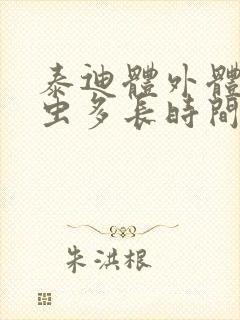 泰迪體外體
虫多長時間
朱洪根